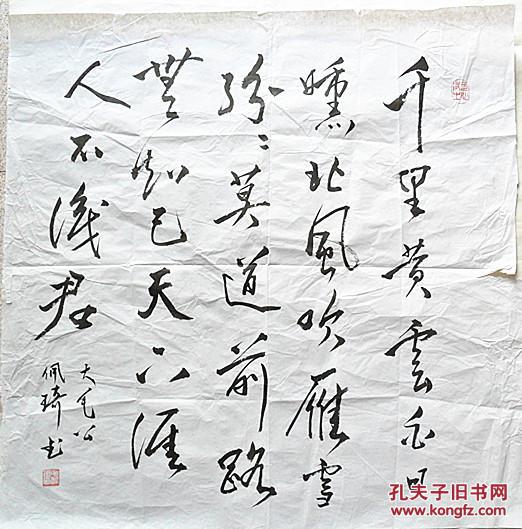 千里黄雲白日
曛北風吹雁雪
紛〻莫道前路
無知己天下誰
人不識君
佩琦书
孔夫子旧书网
www.kongfz.com